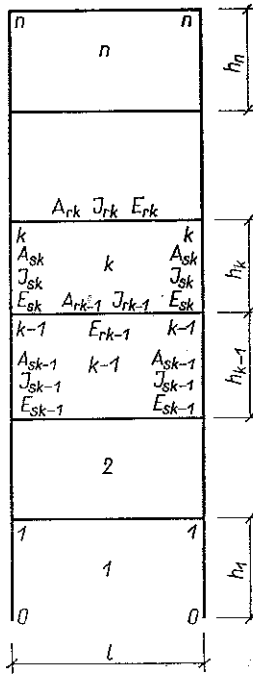 n n
n
hₙ
Aᵣₖ Jᵣₖ Eᵣₖ
k k
Aₛₖ Aₛₖ
k
Jₛₖ Jₛₖ
hₖ
Eₛₖ Aᵣₖ₋₁ Jᵣₖ₋₁ Eₛₖ
k-1 Eᵣₖ₋₁ k-1
Aₛₖ₋₁ k-1 Aₛₖ₋₁
Jₛₖ₋₁ Jₛₖ₋₁
Eₛₖ₋₁ Eₛₖ₋₁
hₖ₋₁
2
1 1
1
h₁
0 0
l